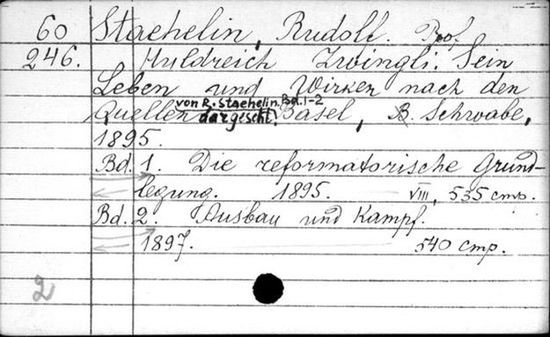 60 Staehelin, Rudolf. Prof.
246. Huldreich Zwingli. Sein
Leben und Wirken nach den
Quellen von R. Staehelin. Bd. 1-2
dargest. Basel, B. Schwabe,
1895.
Bd. 1. Die reformatorische Grund-
legung. 1895. VIII, 535 cmp.
Bd. 2. Ausbau und Kampf.
1897. 540 cmp.
2